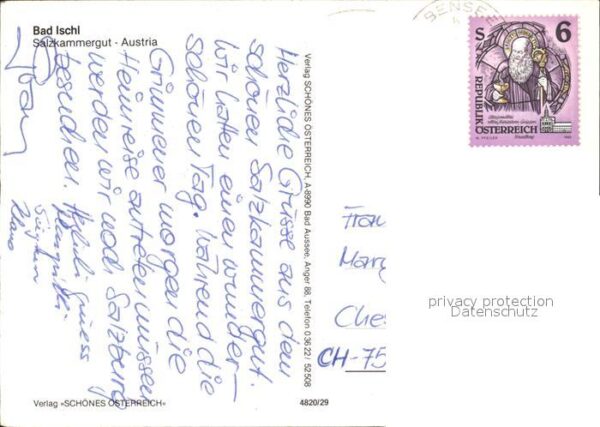 Bad Ischl
Salzkammergut - Austria
Herzliche Grüsse aus dem
schönen Salzkammergut.
Wir hatten einen wunder-
schönen Tag. Während die
morgen die
Heimreise antreten müssen
werden wir noch Salzburg
besuchen. Herzlich
Verlag SCHÖNES ÖSTERREICH, A-8990 Bad Aussee, Anger 88, Telefon 0 36 22 / 52 5 08
BENSE
S 6
REPUBLIK
ÖSTERREICH
Frau
Marg
Che
CH-75
privacy protection
Datenschutz
Verlag »SCHÖNES ÖSTERREICH«
4820/29